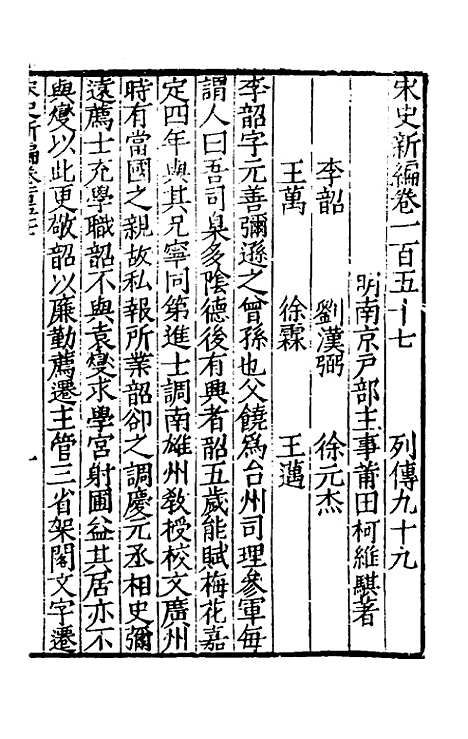 宋史新編卷一百五十七　列傳九十九
明南京戸部主事莆田柯維騏著
李韶　劉漢弼　徐元杰
王萬　徐霖　王邁
李韶字元善彌遜之曾孫也父饒爲台州司理參軍每
謂人曰吾司臬多陰德後有興者韶五歲能賦梅花嘉
定四年與其兄寧同第進士調南雄州教授校文廣州
時有當國之親故私報所業韶卻之調慶元丞相史彌
遠薦士充學職韶不與袁燮求學宮射圃益其居亦不
與燮以此更敬韶以廉勤薦遷主管三省架閣文字遷